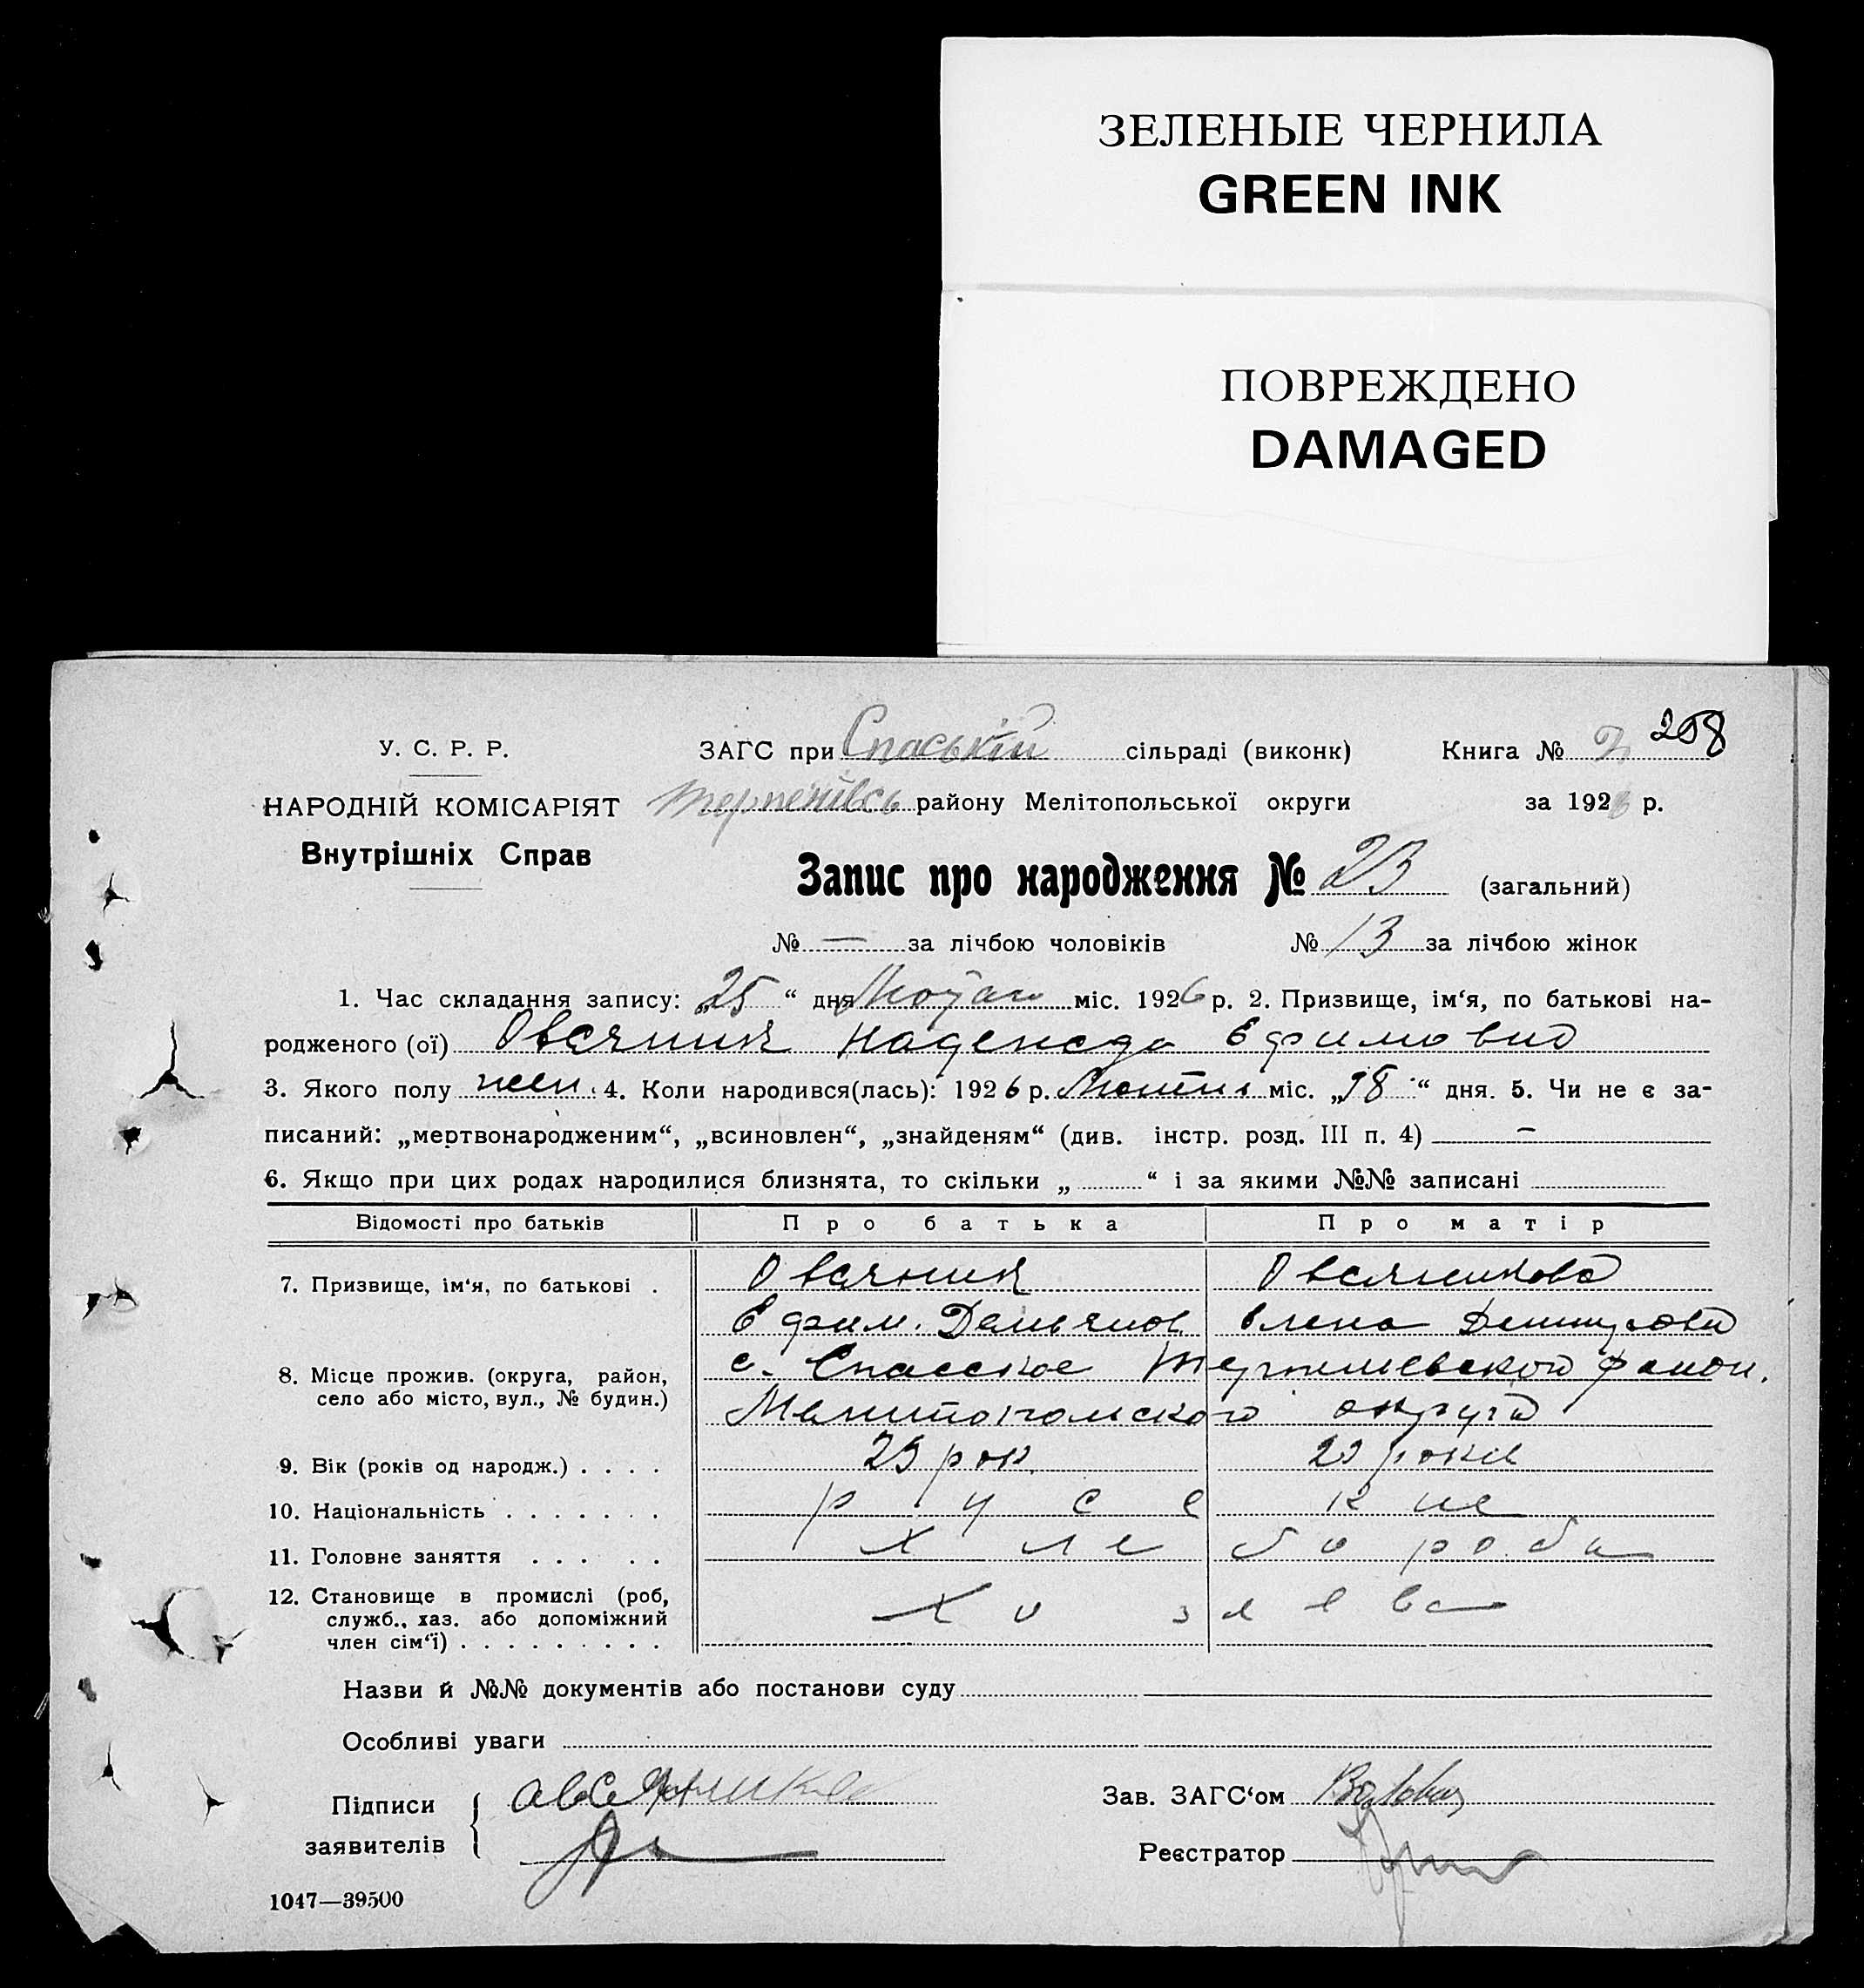 ЗЕЛЕНЫЕ ЧЕРНИЛА
GREEN INK
ПОВРЕЖДЕНО
DAMAGED
258
У. С. Р. Р.
ЗАГС при Спаській сільраді (виконк) Книга № 2
НАРОДНІЙ КОМІСАРІЯТ
Внутрішніх Справ
района Мелітопольської округи за 192 р.
Запис про народження № 23 (загальний)
№ — за лічбою чоловіків № 13 за лічбою жінок
1. Час складання запису: „25“ дня міс. 1926 р. 2. Призвище, ім‘я, по батькові на-
родженого (ої) Овсяник Надежда Ефимовно
3. Якого полу жен. 4. Коли народився(лась): 1926 р. міс. „18“ дня. 5. Чи не є за-
писаний: „мертвонародженим“, „всиновлен“, „знайденям“ (див. інстр. розд. III п. 4) —
6. Якщо при цих родах народилися близнята, то скільки „ “ і за якими №№ записані
Відомості про батьків Про батька Про матір
7. Призвище, ім‘я, по батькові . Овсяник Овсяникова
Ефим. Демьянов Елена
8. Місце прожив. (округа, район,
село або місто, вул., № будин.)
с. Спасское район.
Мелитопольского округа
9. Вік (років од народж.) . . . . 25 рок 23 роки
10. Національність . . . . . . . русские
11. Головне заняття . . . . . хлебороби
12. Становище в промислі (роб,
служб., хаз. або допоміжний
член сім‘ї) . . . . . . . . . хозяева
Назви й №№ документів або постанови суду
Особливі уваги
Підписи
заявителів
Зав. ЗАГС‘ом
Реєстратор
1047—39500